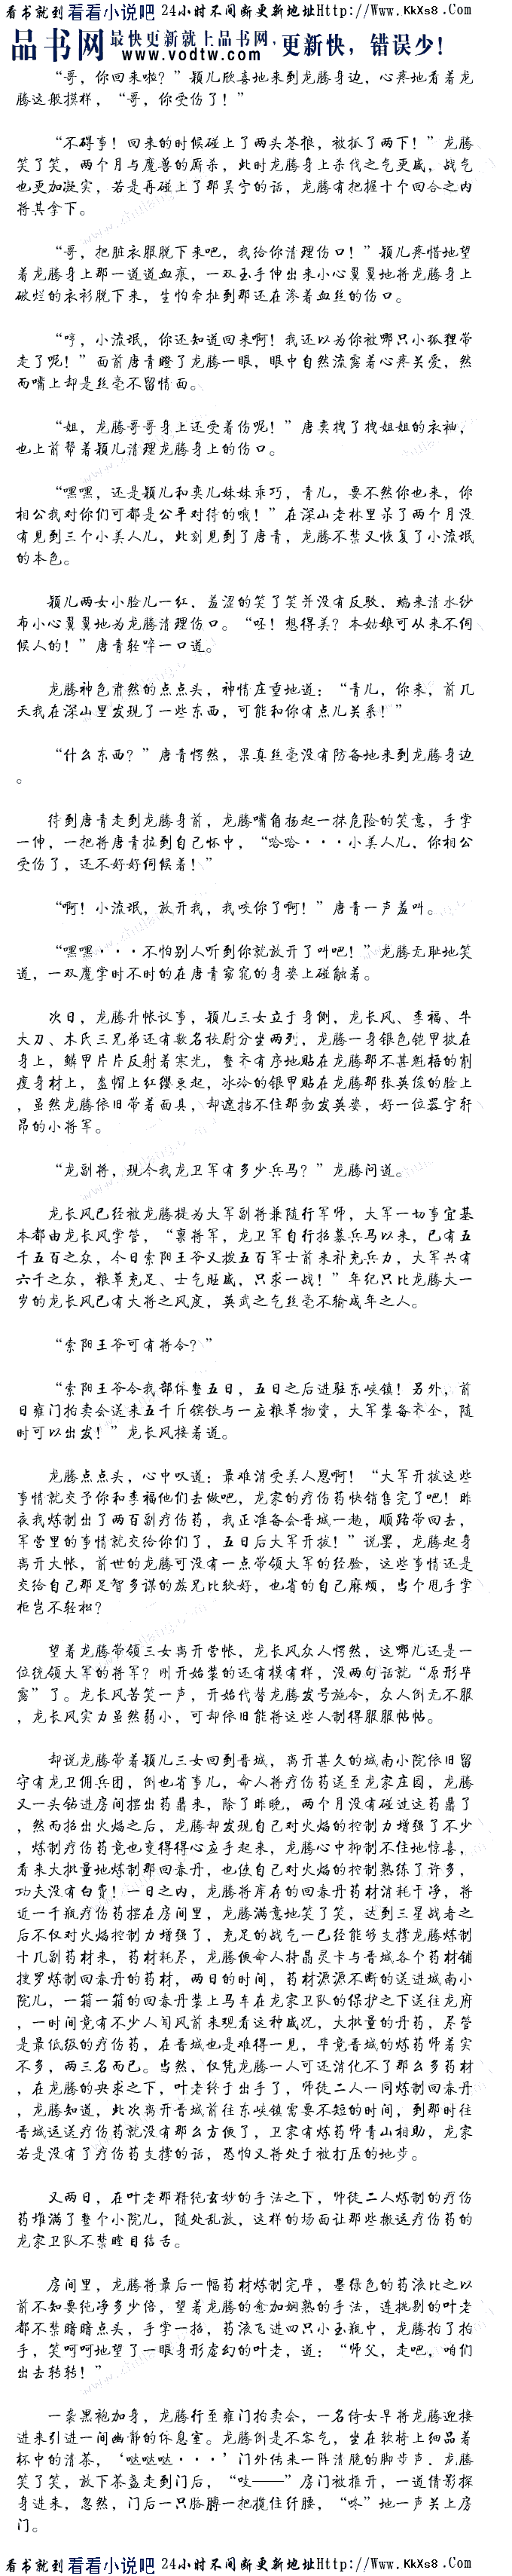 看书就到看看小说吧 24小时不间断更新地址Http://Www.KkXs8.Com
品书网 最快更新就上品书网，更新快，错误少！
www.vodtw.com
“哥，你回来啦？”颖儿欣喜地来到龙腾身边，心疼地看着龙
腾这般摸样，“哥，你受伤了！”
“不碍事！回来的时候碰上了两头苍狼，被抓了两下！”龙腾
笑了笑，两个月与魔兽的厮杀，此时龙腾身上杀伐之气更盛，战气
也更加凝实，若是再碰上了那吴宁的话，龙腾有把握十个回合之内
将其拿下。
“哥，把脏衣服脱下来吧，我给你清理伤口！”颖儿疼惜地望
着龙腾身上那一道道血痕，一双玉手伸出来小心翼翼地将龙腾身上
破烂的衣衫脱下来，生怕牵扯到那还在渗着血丝的伤口。
“哼，小流氓，你还知道回来啊！我还以为你被哪只小狐狸带
走了呢！”面前唐青瞪了龙腾一眼，眼中自然流露着心疼关爱，然
而嘴上却是丝毫不留情面。
“姐，龙腾哥哥身上还受着伤呢！”唐奕拽了拽姐姐的衣袖，
也上前帮着颖儿清理龙腾身上的伤口。
“嘿嘿，还是颖儿和奕儿妹妹乖巧，青儿，要不然你也来，你
相公我对你们可都是公平对待的哦！”在深山老林里呆了两个月没
有见到三个小美人儿，此刻见到了唐青，龙腾不禁又恢复了小流氓
的本色。
颖儿两女小脸儿一红，羞涩的笑了笑并没有反驳，端来清水纱
布小心翼翼地为龙腾清理伤口。“呸！想得美？本姑娘可从来不伺
候人的！”唐青轻啐一口道。
龙腾神色肃然的点点头，神情庄重地道：“青儿，你来，前几
天我在深山里发现了一些东西，可能和你有点儿关系！”
“什么东西？”唐青愕然，果真丝毫没有防备地来到龙腾身边
。
待到唐青走到龙腾身前，龙腾嘴角扬起一抹危险的笑意，手掌
一伸，一把将唐青拉到自己怀中，“哈哈···小美人儿，你相公
受伤了，还不好好伺候着！”
“啊！小流氓，放开我，我咬你了啊！”唐青一声羞叫。
“嘿嘿···不怕别人听到你就放开了叫吧！”龙腾无耻地笑
道，一双魔掌时不时的在唐青窈窕的身姿上碰触着。
次日，龙腾升帐议事，颖儿三女立于身侧，龙长风、李福、牛
大刀、木氏三兄弟还有数名校尉分坐两列，龙腾一身银色铠甲披在
身上，鳞甲片片反射着寒光，整齐有序地贴在龙腾那不甚魁梧的削
瘦身材上，盔帽上红缨更起，冰冷的银甲贴在龙腾那张英俊的脸上
，虽然龙腾依旧带着面具，却遮挡不住那勃发英姿，好一位器宇轩
昂的小将军。
“龙副将，现今我龙卫军有多少兵马？”龙腾问道。
龙长风已经被龙腾提为大军副将兼随行军师，大军一切事宜基
本都由龙长风掌管，“禀将军，龙卫军自行招募兵马以来，已有五
千五百之众，今日索阳王爷又拨五百军士前来补充兵力，大军共有
六千之众，粮草充足、士气旺盛，只求一战！”年纪只比龙腾大一
岁的龙长风已有大将之风度，英武之气丝毫不输成年之人。
“索阳王爷可有将令？”
“索阳王爷令我部休整五日，五日之后进驻东峡镇！另外，前
日雍门拍卖会送来五千斤镔铁与一应粮草物资，大军装备齐全，随
时可以出发！”龙长风接着道。
龙腾点点头，心中叹道：最难消受美人恩啊！“大军开拔这些
事情就交予你和李福他们去做吧，龙家的疗伤药快销售完了吧！昨
夜我炼制出了两百副疗伤药，我正准备会晋城一趟，顺路带回去，
军营里的事情就交给你们了，五日后大军开拔！”说罢，龙腾起身
离开大帐，前世的龙腾可没有一点带领大军的经验，这些事情还是
交给自己那足智多谋的族兄比较好，也省的自己麻烦，当个甩手掌
柜岂不轻松？
望着龙腾带领三女离开营帐，龙长风众人愕然，这哪儿还是一
位统领大军的将军？刚开始装的还有模有样，没两句话就“原形毕
露”了。龙长风苦笑一声，开始代替龙腾发号施令，众人倒无不服
，龙长风实力虽然弱小，可却依旧能将这些人制得服服帖帖。
却说龙腾带着颖儿三女回到晋城，离开甚久的城南小院依旧留
守有龙卫佣兵团，倒也省事儿，命人将疗伤药送至龙家庄园，龙腾
又一头钻进房间摆出药鼎来，除了昨晚，两个月没有碰过这药鼎了
，然而招出火焰之后，龙腾却发现自己对火焰的控制力增强了不少
，炼制疗伤药竟也变得得心应手起来，龙腾心中抑制不住地惊喜，
看来大批量地炼制那回春丹，也使自己对火焰的控制熟练了许多，
功夫没有白费！一日之内，龙腾将库存的回春丹药材消耗干净，将
近一千瓶疗伤药摆在房间里，龙腾满意地笑了笑，达到三星战者之
后不仅对火焰控制力增强了，充足的战气一已经能够支撑龙腾炼制
十几副药材来，药材耗尽，龙腾便命人持晶灵卡与晋城各个药材铺
搜罗炼制回春丹的药材，两日的时间，药材源源不断的送进城南小
院儿，一箱一箱的回春丹装上马车在龙家卫队的保护之下送往龙府
，一时间竟有不少人闻风前来观看这种盛况，大批量的丹药，尽管
是最低级的疗伤药，在晋城也是难得一见，毕竟晋城的炼药师着实
不多，两三名而已。当然，仅凭龙腾一人可还消化不了那么多药材
，在龙腾的央求之下，叶老终于出手了，师徒二人一同炼制回春丹
，龙腾知道，此次离开晋城前往东峡镇需要不短的时间，到那时往
晋城运送疗伤药就没有那么方便了，卫家有炼药师青山相助，龙家
若是没有了疗伤药支撑的话，恐怕又将处于被打压的地步。
又两日，在叶老那精纯玄妙的手法之下，师徒二人炼制的疗伤
药堆满了整个小院儿，随处乱放，这样的场面让那些搬运疗伤药的
龙家卫队不禁瞠目结舌。
房间里，龙腾将最后一幅药材炼制完毕，墨绿色的药液比之以
前不知要纯净多少倍，望着龙腾的愈加娴熟的手法，连挑剔的叶老
都不禁暗暗点头，手掌一招，药液飞进四只小玉瓶中，龙腾拍了拍
手，笑呵呵地望了一眼身形虚幻的叶老，道：“师父，走吧，咱们
出去转转！”
一袭黑袍加身，龙腾行至雍门拍卖会，一名侍女早将龙腾迎接
进来引进一间幽静的休息室。龙腾倒是不客气，坐在软椅上细品着
杯中的清茶，‘哒哒哒···’门外传来一阵清脆的脚步声，龙腾
笑了笑，放下茶盏走到门后，“吱——”房门被推开，一道倩影探
身进来，忽然，门后一只胳膊一把揽住纤腰，“咚”地一声关上房
门。
看书就到看看小说吧 24小时不间断更新地址Http://Www.KkXs8.Com